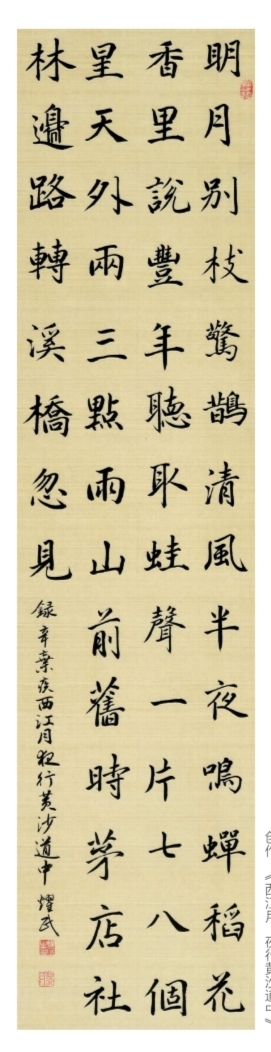 明月别枝驚鵲清風半夜鳴蟬稻花
香里說豐年聽取蛙聲一片七八個
星天外兩三點雨山前舊時茅店社
林邊路轉溪橋忽見
録辛棄疾西江月夜行黄沙道中 燿武
创作《西江月 夜行黄沙道中》